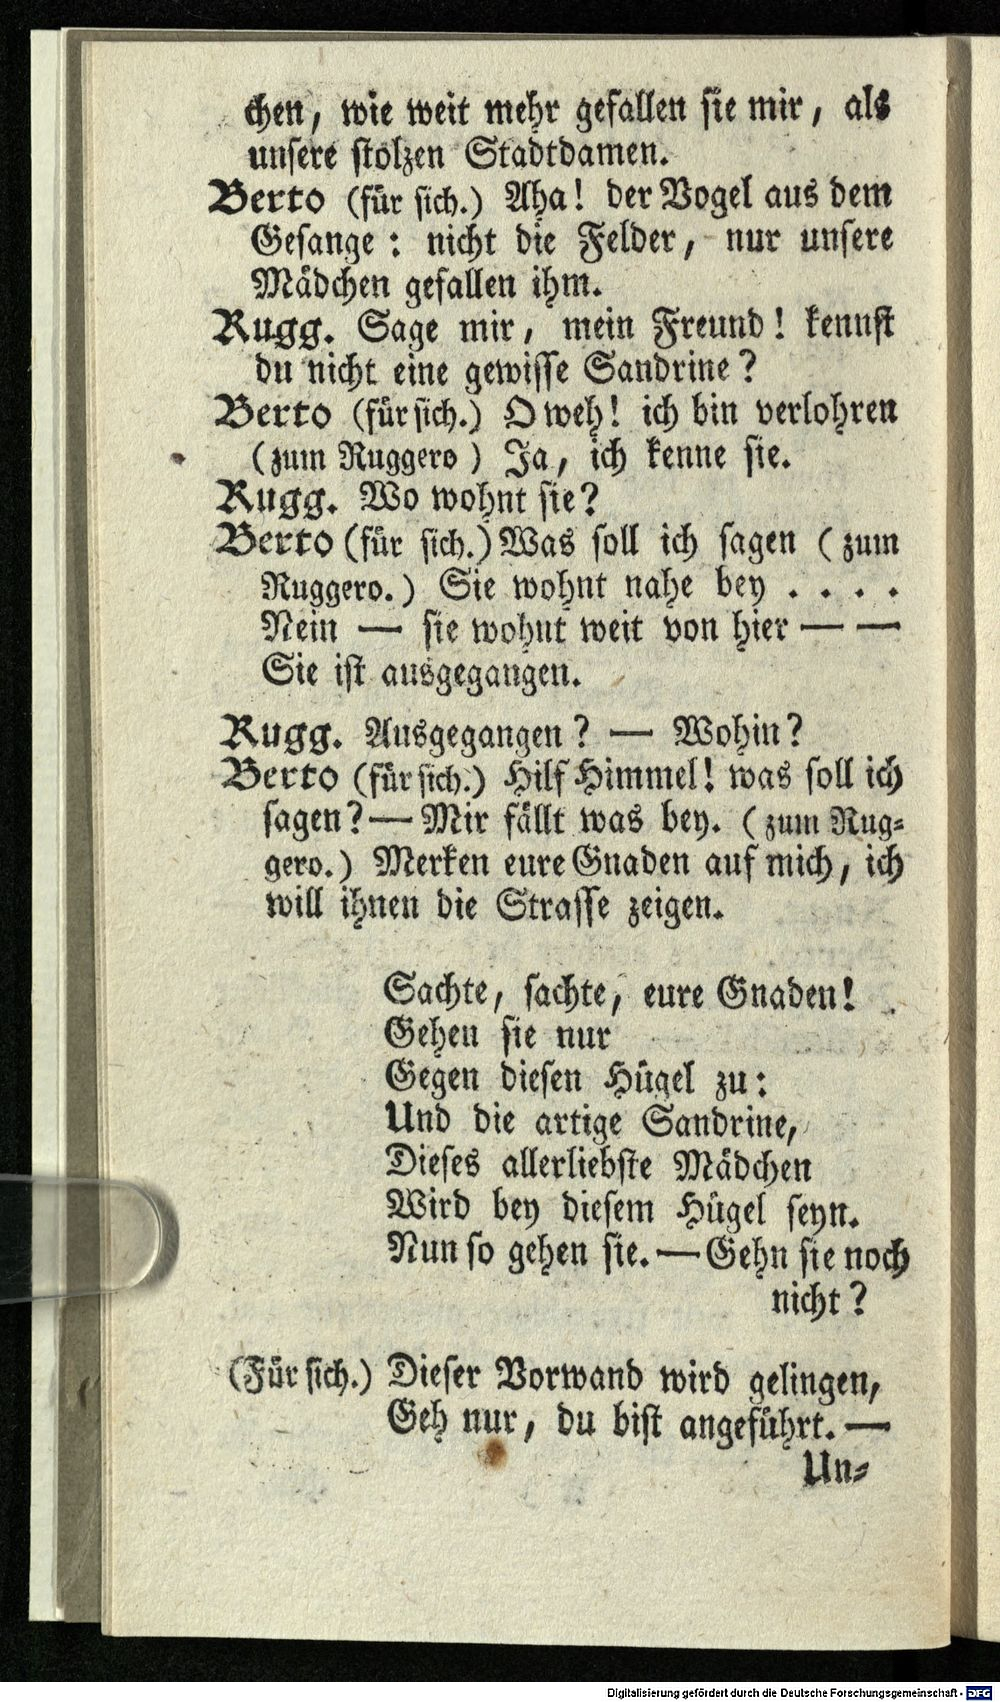 chen, wie weit mehr gefallen sie mir, als
unsere stolzen Stadtdamen.
Berto (für sich.) Aha! der Vogel aus dem
Gesange: nicht die Felder, nur unsere
Mädchen gefallen ihm.
Rugg. Sage mir, mein Freund! kennst
du nicht eine gewisse Sandrine?
Berto (für sich.) O weh! ich bin verlohren
(zum Ruggero) Ja, ich kenne sie.
Rugg. Wo wohnt sie?
Berto (für sich.) Was soll ich sagen (zum
Ruggero.) Sie wohnt nahe bey . . . .
Nein — sie wohnt weit von hier — —
Sie ist ausgegangen.
Rugg. Ausgegangen? — Wohin?
Berto (für sich.) Hilf Himmel! was soll ich
sagen? — Mir fällt was bey. (zum Rug-
gero.) Merken eure Gnaden auf mich, ich
will ihnen die Strasse zeigen.
Sachte, sachte, eure Gnaden!
Gehen sie nur
Gegen diesen Hügel zu:
Und die artige Sandrine,
Dieses allerliebste Mädchen
Wird bey diesem Hügel seyn.
Nun so gehen sie. — Gehn sie noch
nicht?
(Für sich.) Dieser Vorwand wird gelingen,
Geh nur, du bist angeführt. —
Un-
Digitalisierung gefördert durch die Deutsche Forschungsgemeinschaft - DFG